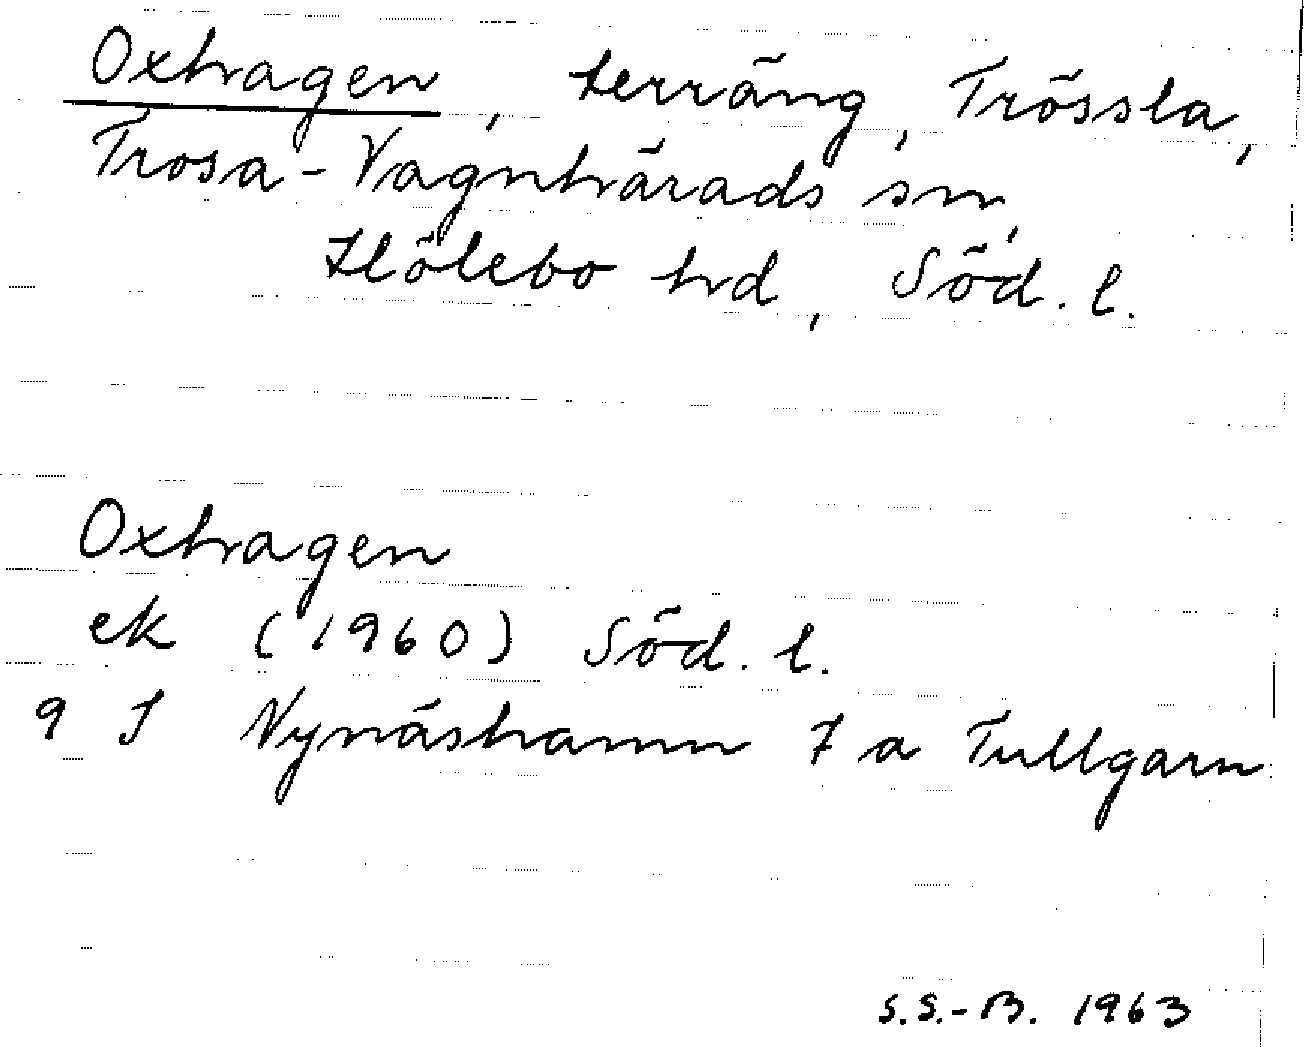 Oxhagen, terräng, Trössla,
Trosa-Vagnhärads sn,
Hölebo hd, Söd. l.
Oxhagen
ek (1960) Söd. l.
9 I Nynäshamn 7 a Tullgarn
S.S.-B. 1963